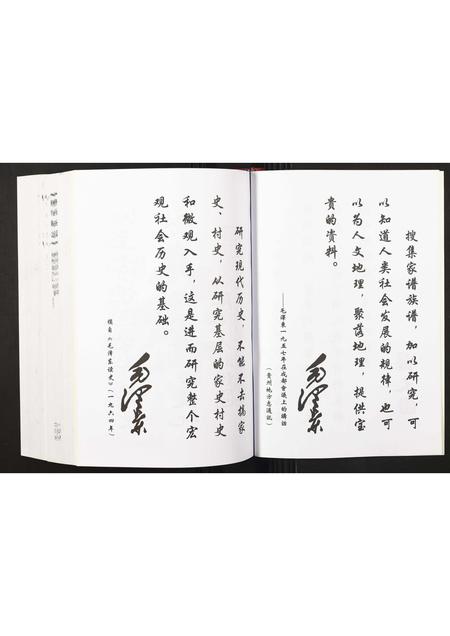 搜集家谱族谱，加以研究，可
以知道人类社会发展的规律，也可
以为人文地理，聚落地理，提供宝
贵的资料。
——毛泽东一九五七年在成都会议上的讲话
（贵州地方志通讯）
毛泽东
研究现代历史，不能不去搞家
史、村史，从研究基层的家史村史
和微观入手，这是进而研究整个宏
观社会历史的基础。
摘自《毛泽东读史》（一九六四年）
毛泽东